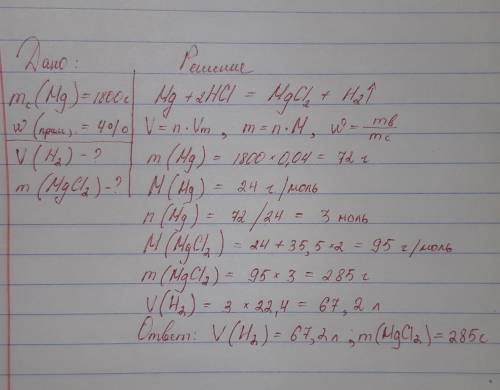 Дано:
m_c(Mg) = 1800 г
w(прим.) = 4%
V(H₂) - ?
m(MgCl₂) - ?
Решение
Mg + 2HCl = MgCl₂ + H₂↑
V = n · Vm , m = n · M , w = mв/mc
m(Mg) = 1800 × 0,04 = 72 г
M(Mg) = 24 г/моль
n(Mg) = 72/24 = 3 моль
M(MgCl₂) = 24 + 35,5 × 2 = 95 г/моль
m(MgCl₂) = 95 × 3 = 285 г
V(H₂) = 3 × 22,4 = 67,2 л
Ответ: V(H₂) = 67,2 л ; m(MgCl₂) = 285 г